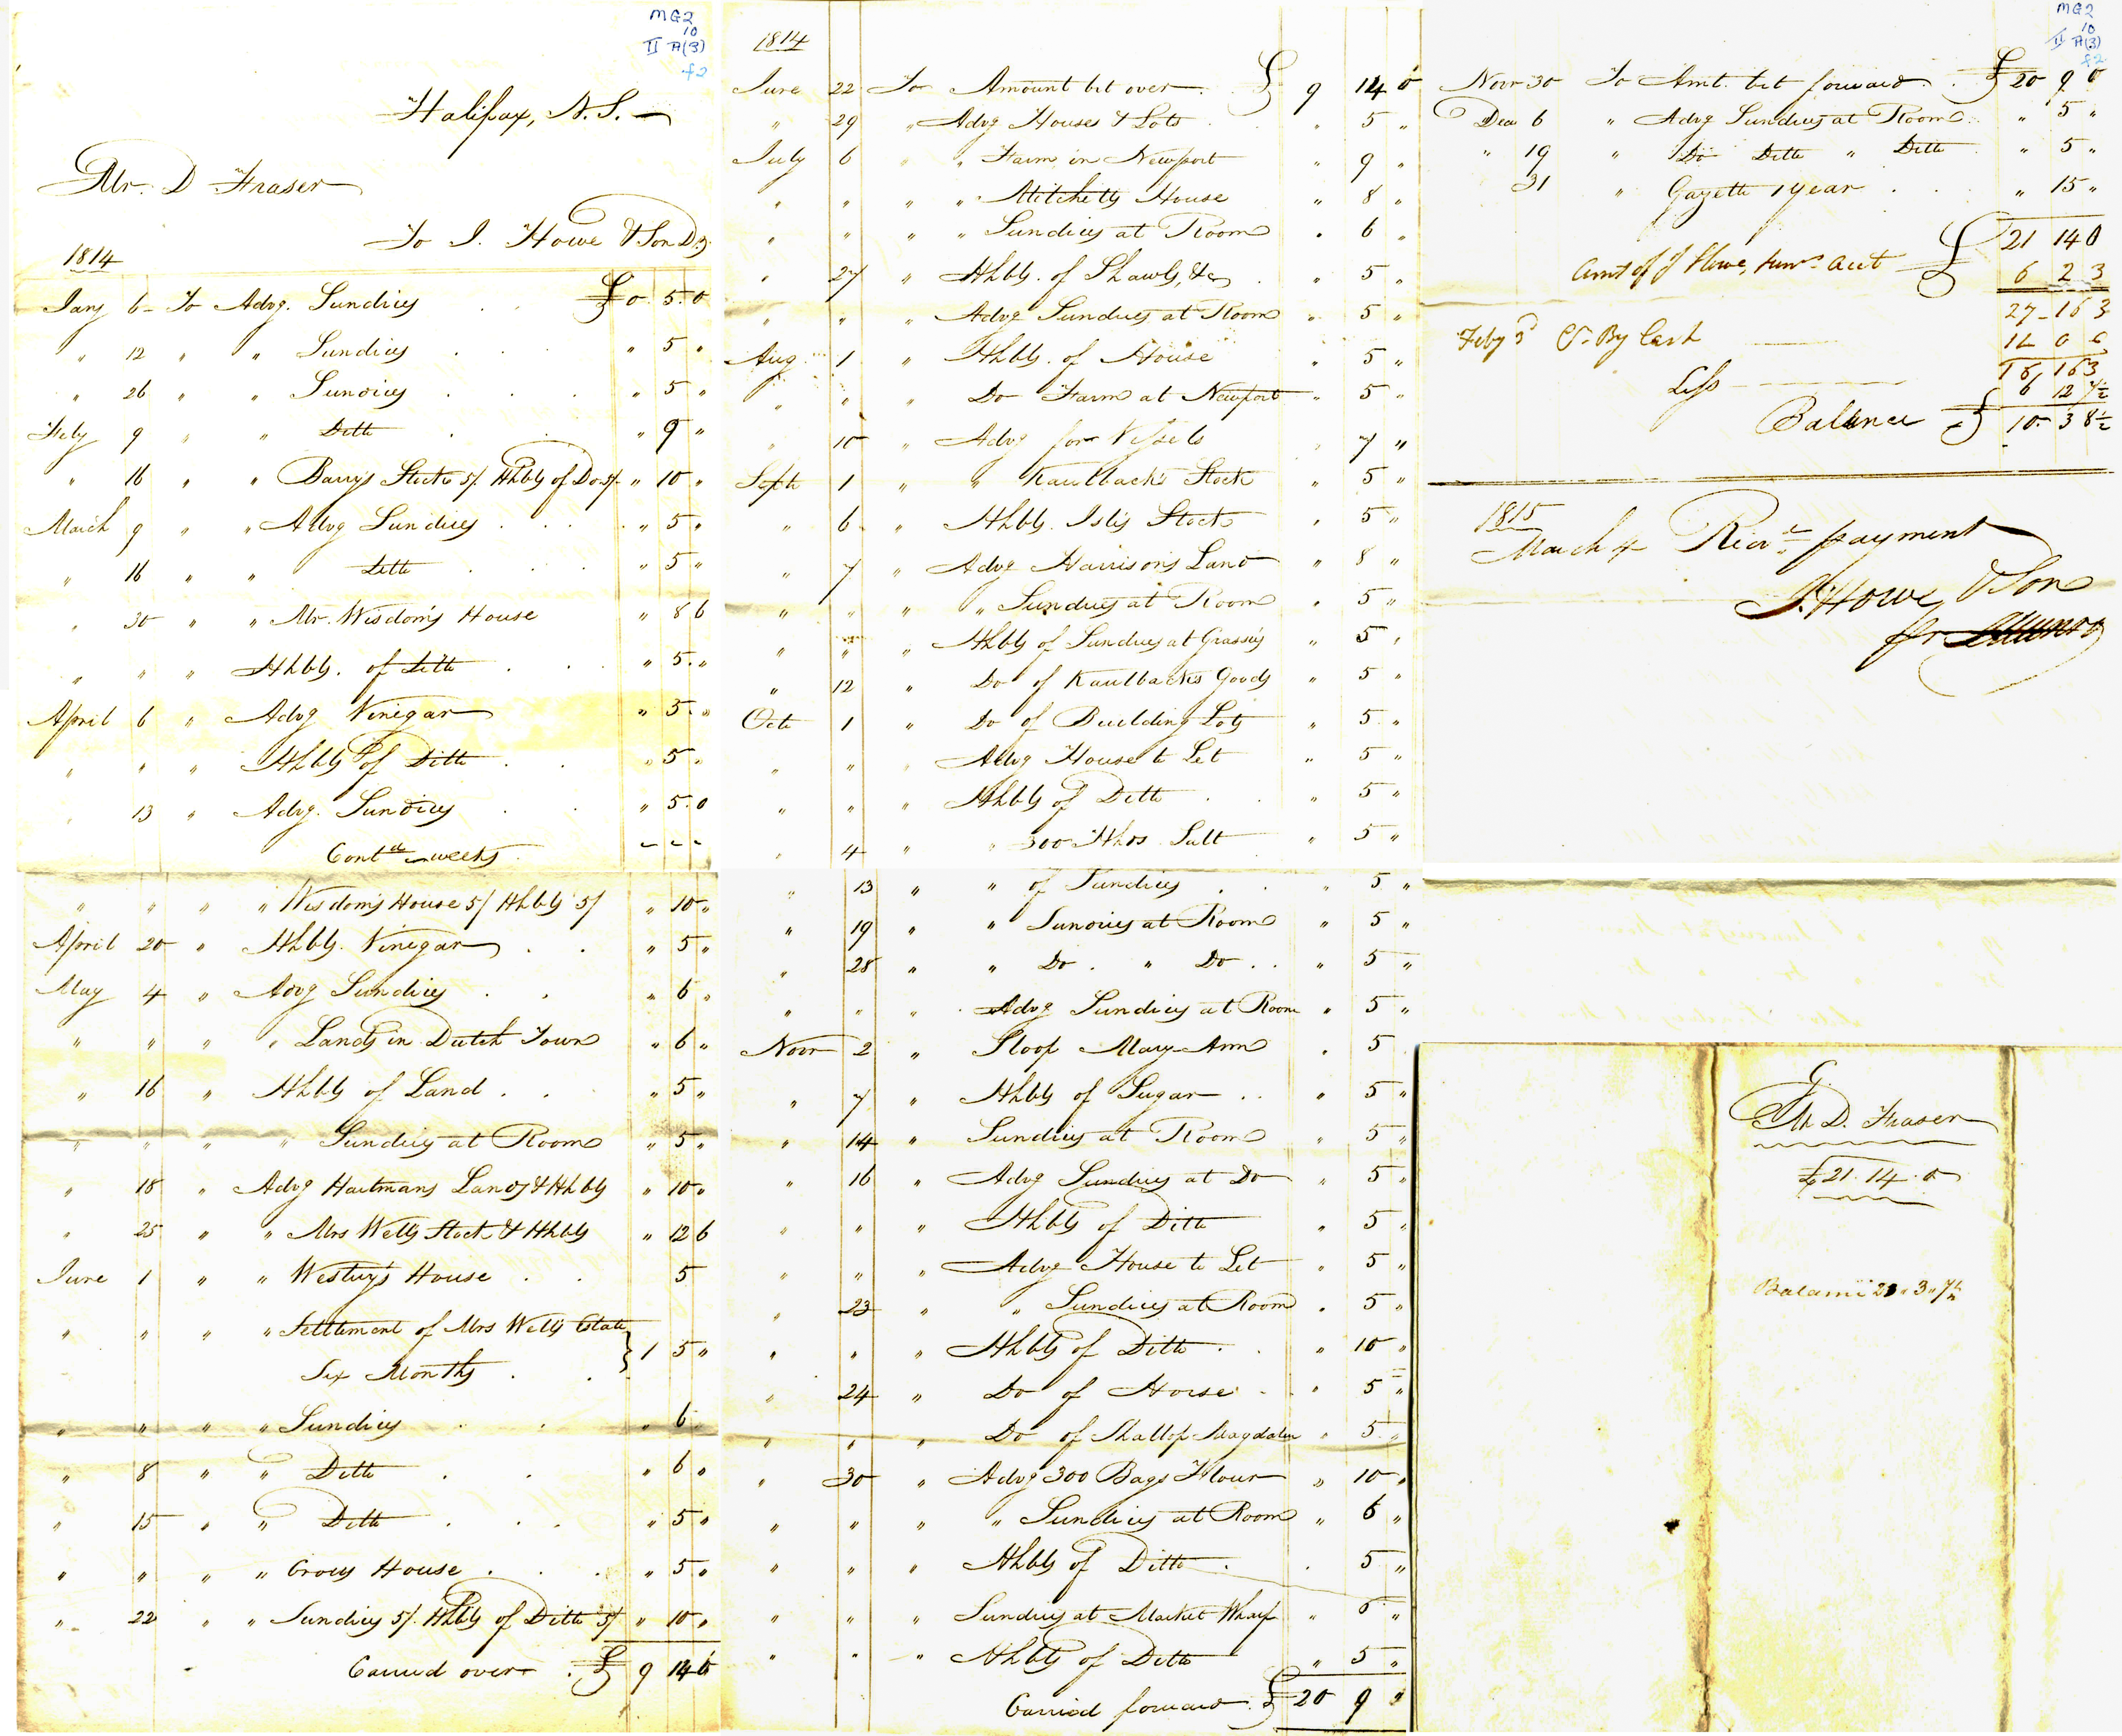 MG2
10
II A(3)
f2
Halifax, N.S.
Mr. D Fraser
To J. Howe & Son Dr.
1814
Jany 6 To Advg. Sundries . . £0. 5. 0
" 12 " " Sundries . . . " 5 "
" 26 " " Sundries . . . " 5 "
Feby 9 " " Ditto . . " 9 "
" 16 " " Barrys Stock 5/ Hhbls of Do 5/ " 10 "
March 9 " " Advg Sundries . . . " 5 "
" 16 " " Ditto . . . " 5 "
" 30 " " Mr. Wisdom's House " 8 6
" " " Hhbls. of Ditto . . . " 5 "
April 6 " Advg Vinegar " 5 "
" " " Hhbls of Ditto . . " 5 "
" 13 " Advg. Sundries . . " 5. 0
Contd weeks - - -
" " " " Wisdoms House 5/ Hhbls 5/ " 10 "
April 20 " Hhbls. Vinegar . . " 5 "
May 4 " Advg Sundries . . " 6 "
" " " " Lands in Dutch Town " 6 "
" 16 " Hhbls of Land . . " 5 "
" " " " Sundries at Room " 5 "
" 18 " Advg Hartmans Lands & Hhbls " 10 "
" 25 " " Mrs Wells Stock & Hhbls " 12 6
June 1 " " Westuy's House . . 5
" " " " Settlement of Mrs Wells Estate
Six Months . . } 1 5 "
" " " " Sundries . . " 6 "
" 8 " " Ditto . . " 6 "
" 15 " " Ditto . . . " 5 "
" " " " Crows House . . . " 5 "
" 22 " " Sundries 5/. Hhbls of Ditto 5/ " 10 "
Carried over . £ 9 14 0
1814
June 22 To Amount bt over . £ 9 14 0
" 29 " Advg Houses & Lots . " 5 "
July 6 " " Farm in Newport " 9 "
" " " " Mitchells House " 8 "
" " " " Sundries at Room " 6 "
" 27 " Hhbls. of Shawls, &c . " 5 "
" " " Advg Sundries at Room " 5 "
Aug 1 " Hhbls. of House " 5 "
" " " Do Farm at Newport " 5 "
" 10 " Advg for Vessels " 7 "
Septr 1 " " Kaulback's Stock " 5 "
" 6 " Hhbls. Isl's Stock " 5 "
" 7 " Advg Harrison's Land " 8 "
" " " " Sundries at Room " 5 "
" " " Hhbls of Sundries at Grassie's " 5 "
" 12 " Do of Kaulbacks Goods " 5 "
Octr 1 " Do of Building Lots " 5 "
" " " Advg House to Let " 5 "
" " " Hhbls of Ditto . . " 5 "
" 4 " " 300 Hhds Salt " 5 "
" 13 " " of Sundries . . " 5 "
" 19 " " Sundries at Room " 5 "
" 28 " " Do . " Do . . " 5 "
" " " Advg Sundries at Room " 5 "
Novr 2 " Sloop Mary Ann " 5
" 7 " Hhbls of Sugar . . " 5 "
" 14 " Sundries at Room " 5 "
" 16 " Advg Sundries at Do " 5 "
" " " Hhbls of Ditto " 5 "
" " " Advg House to Let " 5 "
" 23 " " Sundries at Room " 5 "
" " " Hhbls of Ditto . . " 10 "
" 24 " Do of Horse . . " 5 "
" " " Do of Shallop Magdalen " 5 "
" 30 " Advg 300 Bags Flour " 10 "
" " " " Sundries at Room " 6 "
" " " Hhbls of Ditto . . 5 "
" " " Sundries at Market Wharf " 6 "
" " " Hhbls of Ditto " 5 "
Carried forward . £ 20 9 "
MG2
10
II A(3)
f2
Novr 30 To Amt. bt forward . £ 20 9 0
Decr 6 " Advg Sundries at Room . " 5 "
" 19 " Do Ditto " Ditto " 5 "
31 " Gazette 1 year . . " 15 "
£ 21 14 0
Amt of J Howe, Junr. Acct 6 2 3
27 - 16 3
Feby Cr. By Cash
16 3
Less 6 12 7½
Balance £ 10 3 8½
1815
March 4 Recvd payment
J. Howe & Son
fr
Mr D. Fraser
£21. 14. 0
Balance